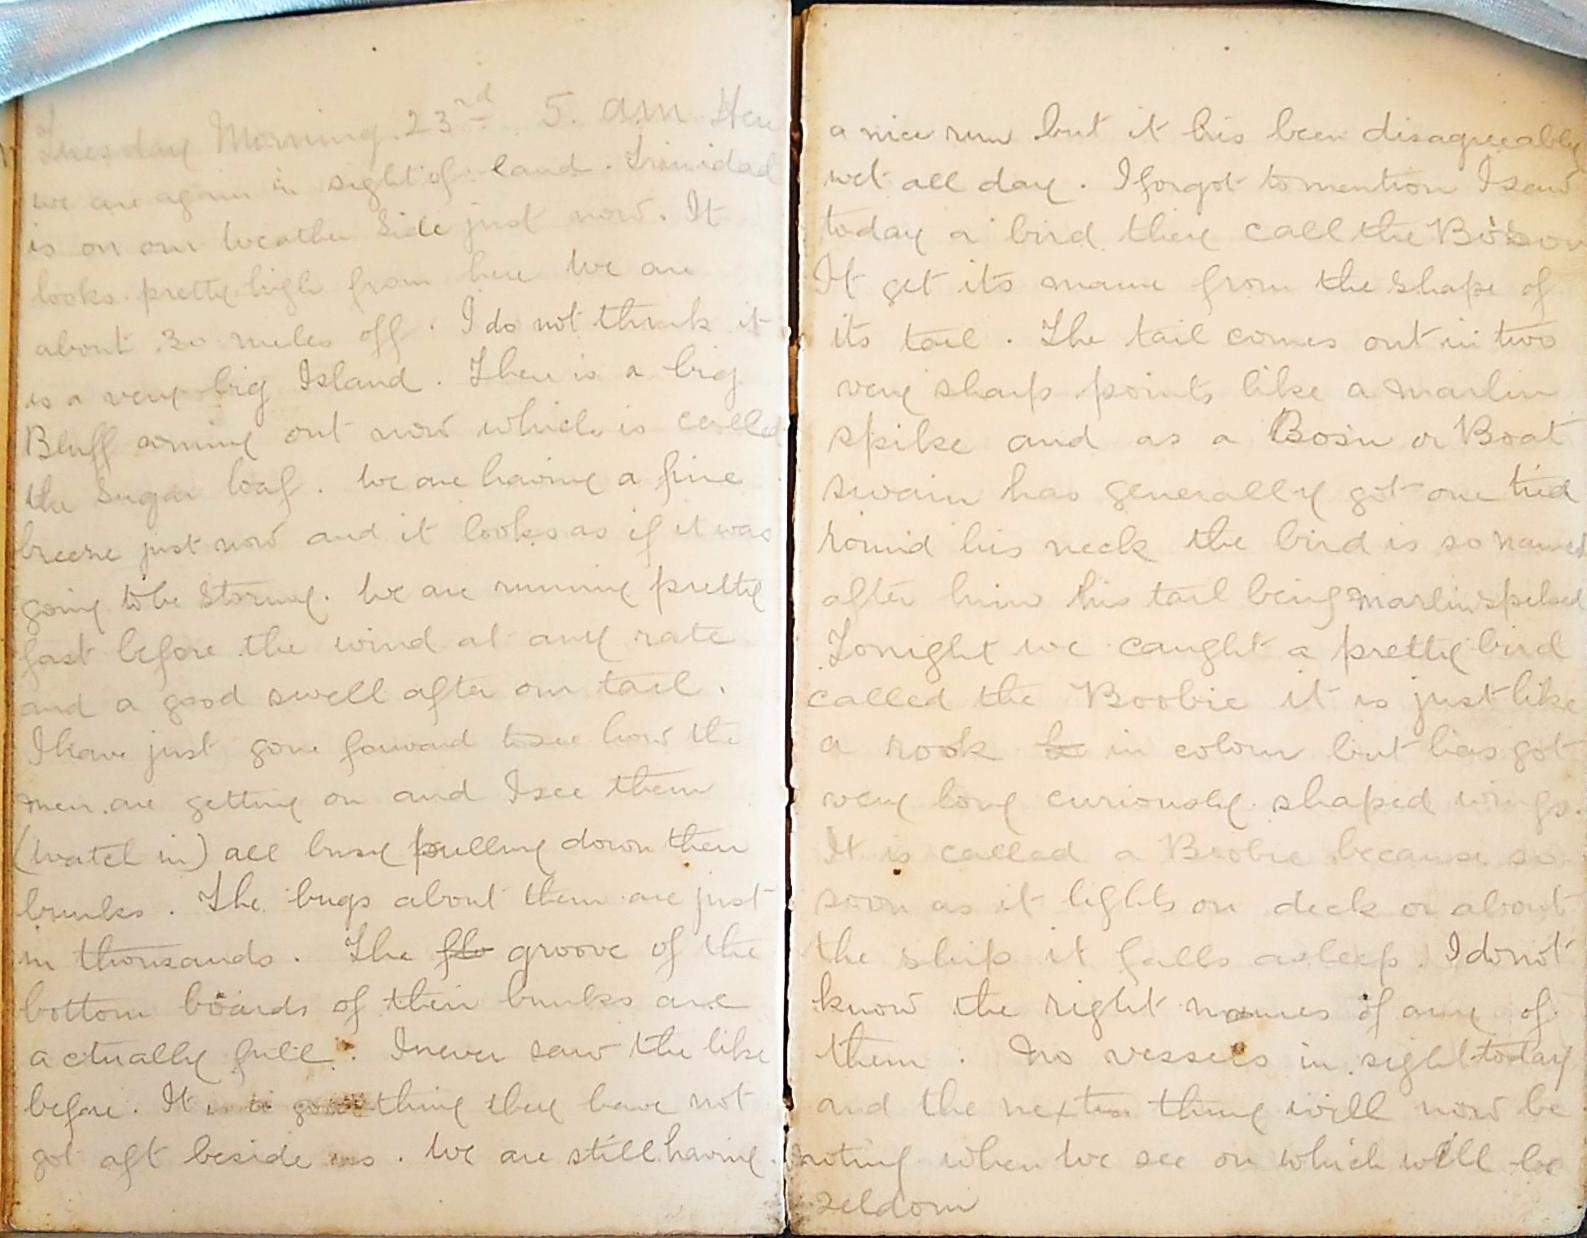 Tuesday Morning. 23rd 5. am Here
we are again in sight of land. Trinidad
is on our weather side just now. It
looks pretty high from here We are
about 30 miles off. I do not think it
is a very big Island. There is a big
Bluff coming out now which is called
the Sugar loaf. We are having a fine
breeze just now and it looks as if it was
going to be stormy. We are running pretty
fast before the wind at any rate
and a good swell after our tail.
I have just gone forward to see how the
men are getting on and I see them
(watch in) all busy pulling down their
bunks. The bugs about them are just
in thousands. The flo groove of the
bottom boards of their bunks are
actually full. I never saw the like
before. It is a good thing they have not
got aft beside us. We are still having
a nice run but it his been disagreeably
wet all day. I forgot to mention I saw
today a bird they call the Bo'son
It get its name from the shape of
its tail. The tail comes out in two
very sharp points like a marlin
spike and as a Bosn or Boat
swain has generally got one tied
round his neck the bird is so named
after him his tail being marlinspiked
Tonight we caught a pretty bird
called the Boobie it is just like
a rook in colour but has got
very long curiously shaped wings.
It is called a Boobie because so
soon as it lights on deck or about
the ship it falls asleep. I do not
know the right names of any of
them. No vessels in sight today
and the next thing will now be
noting when we see on which will be
seldom